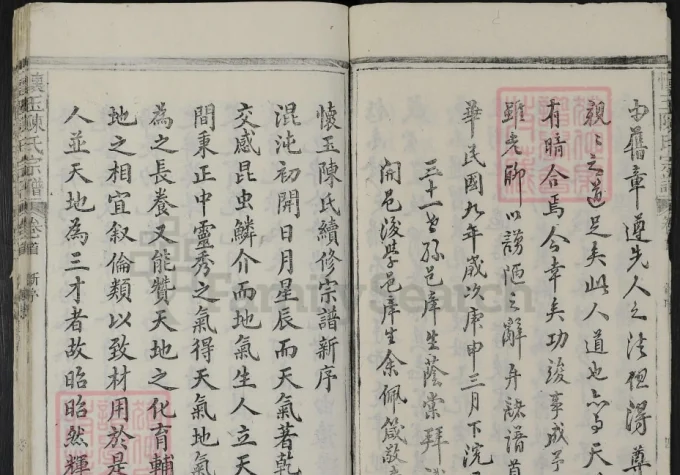 由舊章遵先人之法但得尊
親之道足矣此人道也與天
有暗合焉今幸矣功竣事成予
雖老師以謭陋之辭弁諸譜首
華民國九年歲次庚申三月下浣
三十一世孫邑庠生蔭棠拜
開邑後學邑庠生余佩箴敬
懷玉陳氏續修宗譜新序
混沌初開日月星辰而天氣著乾
交感昆虫鱗介而地氣生人立天
間秉正中靈秀之氣得天氣地氣
為之長養又能贊天地之化育輔
地之相宜叙倫類以致材用於是
人並天地為三才者故昭昭然輝
懷玉陳氏宗譜 卷首 新序
懷玉陳氏宗譜
FamilySearch